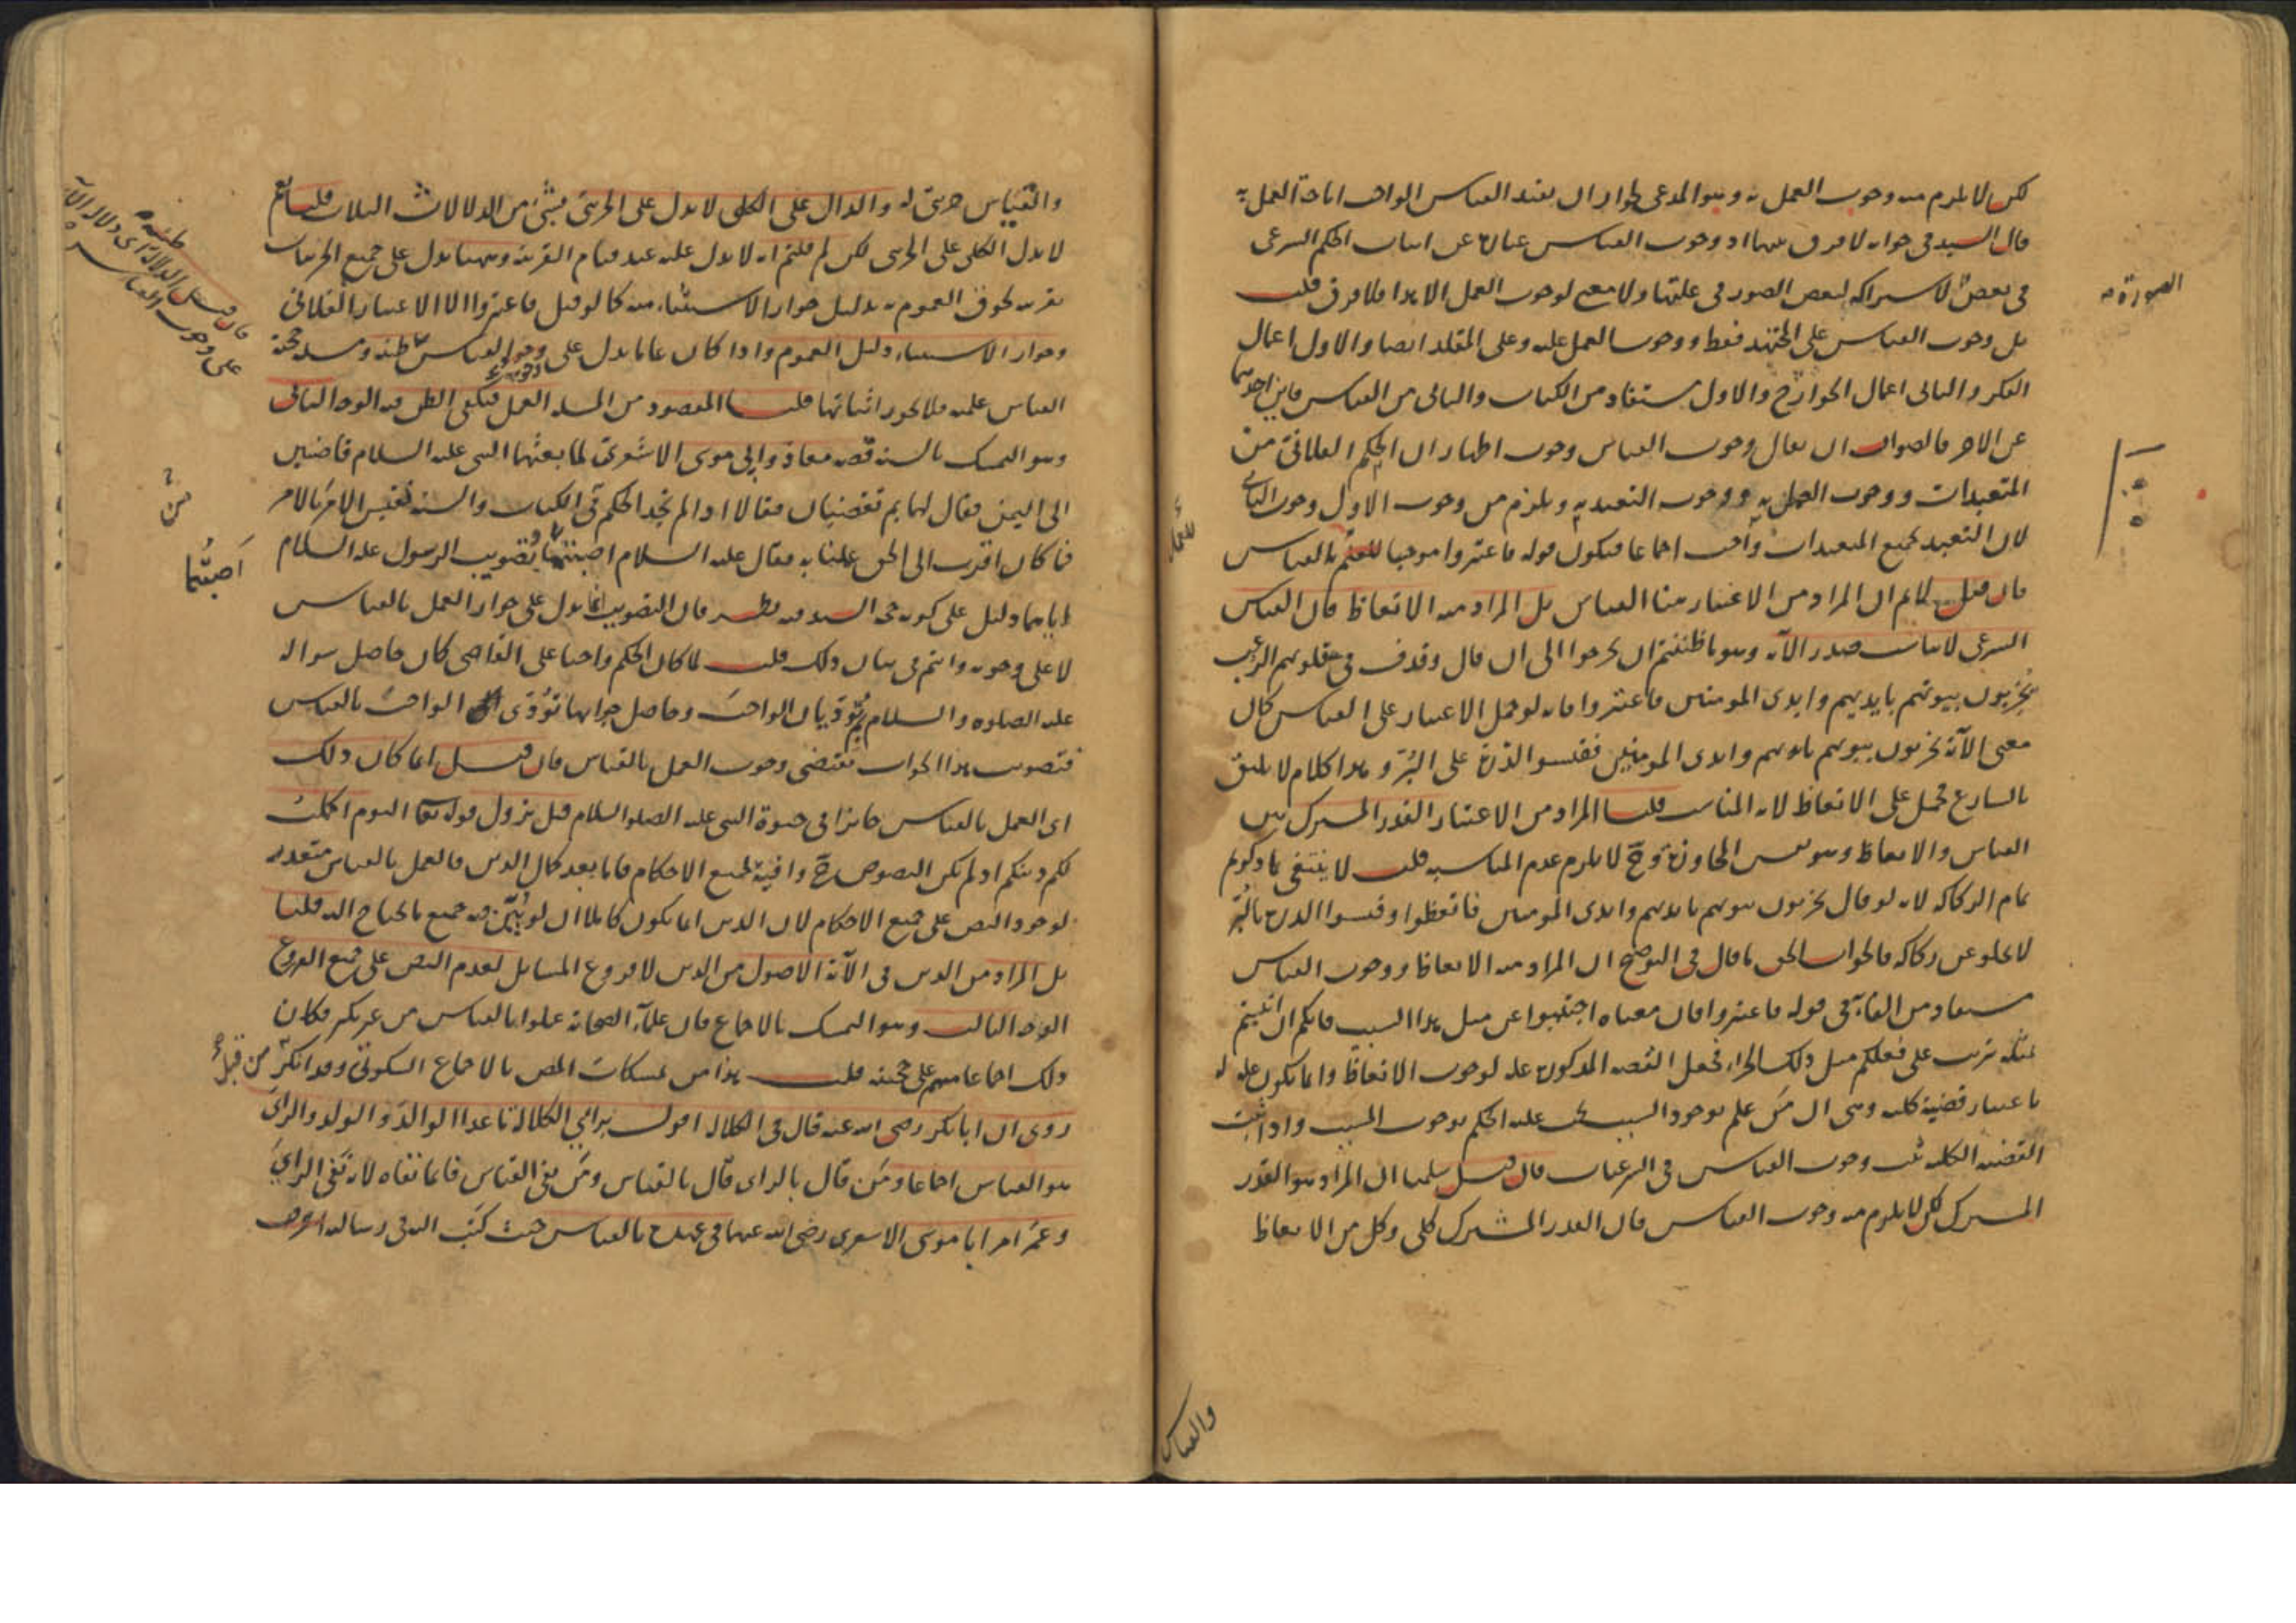 لكن لا يلزم منه وجوب العمل به وهو المدعى لجواز ان يفيد القياس الواحد اباحة العمل به
قال السيد في جوابه لا فرق بينهما اذ وجوب القياس عبارة عن اثبات الحكم الشرعى
في بعض لاشتراكه لبعض الصور في علتها ولا معنى لوجوب العمل الا هذا فلا فرق قلت
الصورة
بل وجوب القياس على المجتهد فقط ووجوب العمل عليه وعلى المقلد ايضا والاول اعمال
الفكر والثانى اعمال الجوارح والاول مستفاد من الكتاب والثانى من القياس فاين احدهما
عن الاخر فالصواب ان يقال وجوب القياس وجوب اظهار ان الحكم الفلانى من
المتعبدات ووجوب العمل به ووجوب التعبد به ويلزم من وجوب الاول وجوب الثانى
لان التعبد بجميع المتعبدات واجب اجماعا فيكون قوله فاعتبروا موجبا للعمل بالقياس
فان قيل لا نم ان المراد من الاعتبار هنا القياس بل المراد منه الاتعاظ فان القياس
الشرعى لا يناسب صدر الآية وهو ما ظننتم ان يخرجوا الى ان قال وقذف في قلوبهم الرعب
يُخْرِبون بيوتهم بايديهم وايدى المومنين فاعتبروا فانه لو حمل الاعتبار على القياس كان
معنى الآية يخربون بيوتهم بايديهم وايدى المومنين فقيسوا الذرة على البُرّ وهذا كلام لا يليق
بالشارع فحمل على الاتعاظ لانه المناسب قلنا المراد من الاعتبار القدر المشترك بين
القياس والاتعاظ وهو نفس المجاوزة وح لا يلزم عدم المناسبة قلت لا ينتفى بما ذكرتم
تمام الركاكة لانه لو قال يخربون بيوتهم بايديهم وايدى المومنين فاتعظوا وقيسوا الذرة بالبُرّ
لا يخلو عن ركاكة فالجواب الحق ما قال في التوضيح ان المراد منه الاتعاظ ووجوب القياس
مستفاد من الفاء في قوله فاعتبروا فان معناه اجتنبوا عن مثل هذا السبب فانكم ان اتيتم
بمثله ترتب على فعلكم مثل ذلك الجزاء فجعل القصة المذكورة علة لوجوب الاتعاظ وانما يكون علة له
باعتبار قضية كلية وهى ان من علم بوجود السبب يجب عليه الحكم بوجود المسبب واذا ثبت
القضية الكلية ثبت وجوب القياس في الشرعيات فان قيل سلمنا ان المراد هو القدر
المشترك لكن لا يلزم منه وجوب القياس فان القدر المشترك كلى وكل من الاتعاظ
والقياس
والقياس جزئى له والدال على الكلى لا يدل على الجزئى بشئ من الدلالات الثلاث قلنا نعم
لا يدل الكلى على الجزئى لكن لم قلتم انه لا يدل عليه عند قيام القرينة وههنا يدل على جميع الجزئيات
بقرينة لحوق العموم به بدليل جواز الاستثناء منه كما لو قيل فاعتبروا الا الاعتبار الفلانى
وجواز الاستثناء دليل العموم واذا كان عاما يدل على وجوب القياس
فان قيل الدلالة اى دلالة الآية
على وجوب القياس
ظنية
القياس علمية فلا يجوز اثباتها قلنا المقصود من المسئلة العمل فيكفى الظن فيه الوجه الثانى
وهو التمسك بالسنة قصة معاذ وابى موسى الاشعرى لما بعثهما النبى عليه السلام قاضيين
الى اليمن فقال لهما بم تقضيان فقالا اذا لم نجد الحكم في الكتاب والسنة نقيس الامر بالامر
فما كان اقرب الى الحق عملنا به فقال عليه السلام اصبتما فتصويب الرسول عليه السلام
اَصَبْتُما
اياهما دليل على كونه حجة السيد فيه نظر فان التصويب انما يدل على جواز العمل بالقياس
لا على وجوبه وانتم في بيان ذلك قلت لما كان الحكم واجبا على القاضى كان حاصل سواله
عليه الصلوه والسلام بم تؤديان الواجب وحاصل جوابهما نؤدى الواجب بالقياس
فتصويب هذا الجواب يقتضى وجوب العمل بالقياس فان قيل انما كان ذلك
اى العمل بالقياس جائزا في حيوة النبى عليه الصلوة والسلام قبل نزول قوله تعالى اليوم اكملت
لكم دينكم اذ لم يكن النصوص ح وافية لجميع الاحكام فاما بعد كمال الدين فالعمل بالقياس متعذر
لوجود النص على جميع الاحكام لان الدين انما يكون كاملا ان لو بُيّن فيه جميع ما يحتاج اليه قلنا
بل المراد من الدين في الآية الاصول من الدين لا فروع المسايل لعدم النص على جميع الفروع
الوجه الثالث وهو التمسك بالاجماع فان علماء الصحابة عملوا بالقياس من غير نكير فكان
ذلك اجماعا منهم على حجيته قلت هذا من تمسكات المص بالاجماع السكوتى وقد انكره من قبل
روى ان ابا بكر رضى الله عنه قال في الكلالة اقول برايى الكلالة ما عدا الوالد والولد والراى
هو القياس اجماعا ومَن قال بالراى قال بالقياس ومَن نفى القياس فانما نفاه لانه نفى الراى
وعمر امر ابا موسى الاشعرى رضى الله عنهما في عهده بالقياس حيث كتب اليه في رسالة اعرف